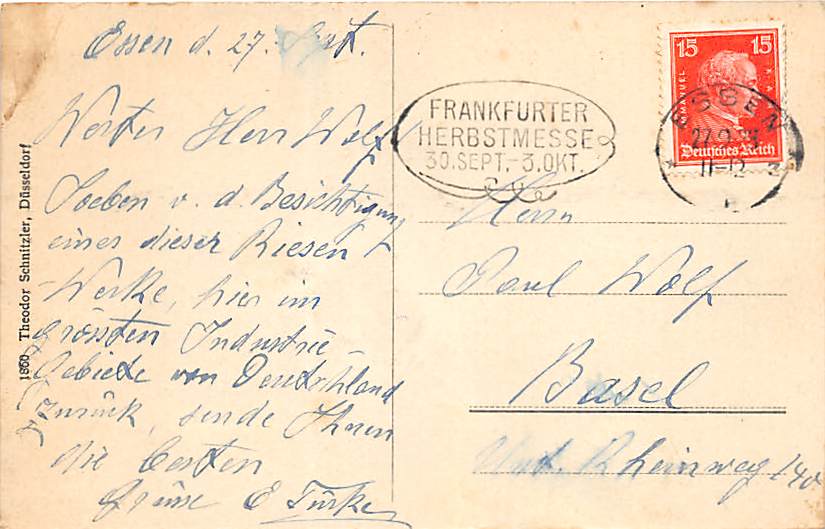 Essen d. 27. Sept.
Werter Herr Wolf
Soeben v. d. Besichtigung
eines dieser Riesen
Werke, hier im
grössten Industrie
Gebiete von Deutschland
zurück, sende Ihnen
die besten
Grüsse E Türke
1860 Theodor Schnitzler, Düsseldorf
FRANKFURTER
HERBSTMESSE
30.SEPT.-3.OKT.
15 15
IMMANUEL KANT
Deutsches Reich
ESSEN
11-12
Herrn
Paul Wolf
Basel
Unt. Rheinweg 140